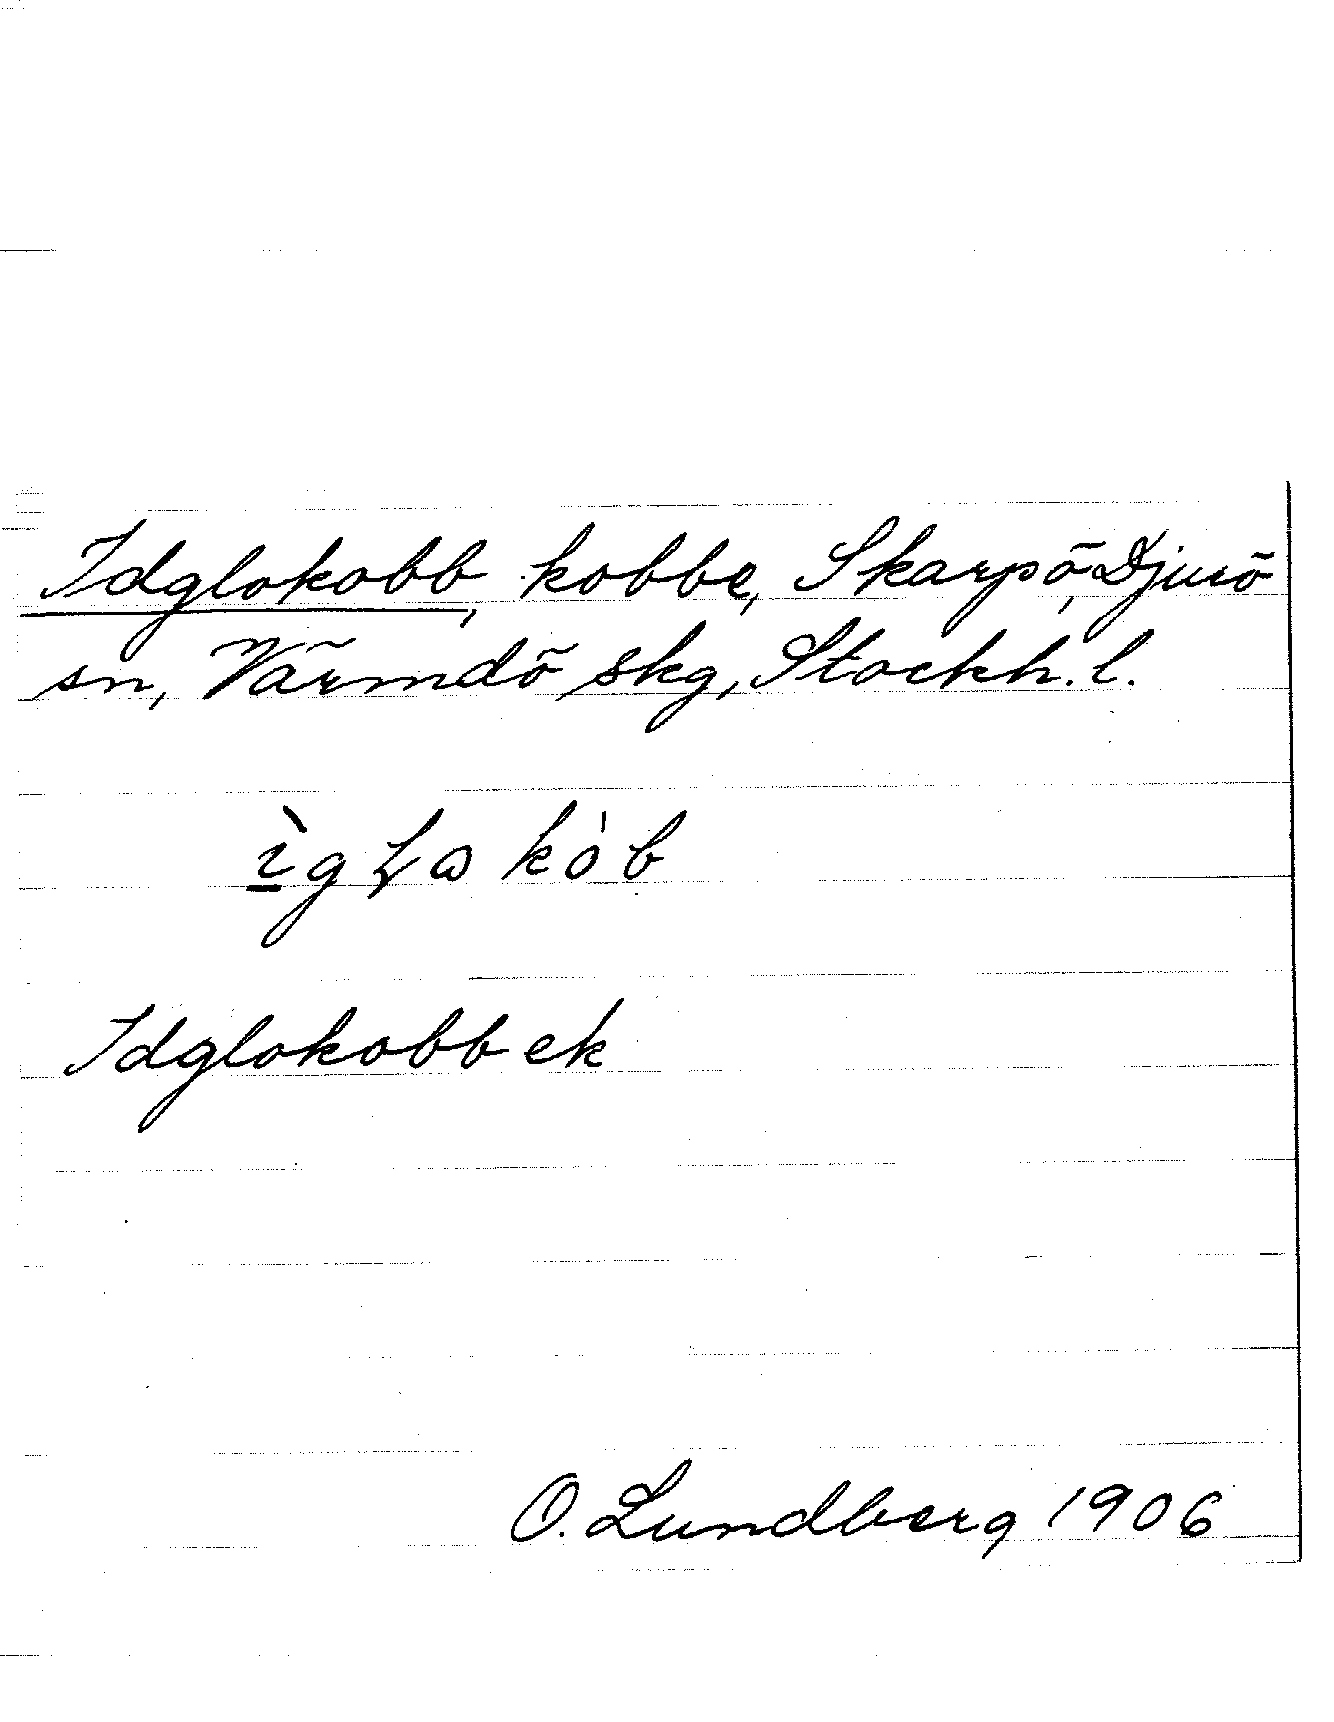 Idglokobb, kobbe, Skarpö, Djurö
sn, Värmdö skg, Stockh. l.
ı̲̀gꞎɷkòb
Idglokobb ek
O. Lundberg 1906